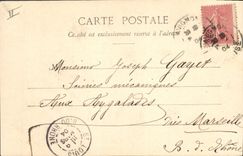 II
CARTE POSTALE
Ce côté est exclusivement réservé à l'adresse
Monsieur Joseph Gayet
Scieries mécaniques
Aux Aygalades
près Marseille
B. d. Rhône